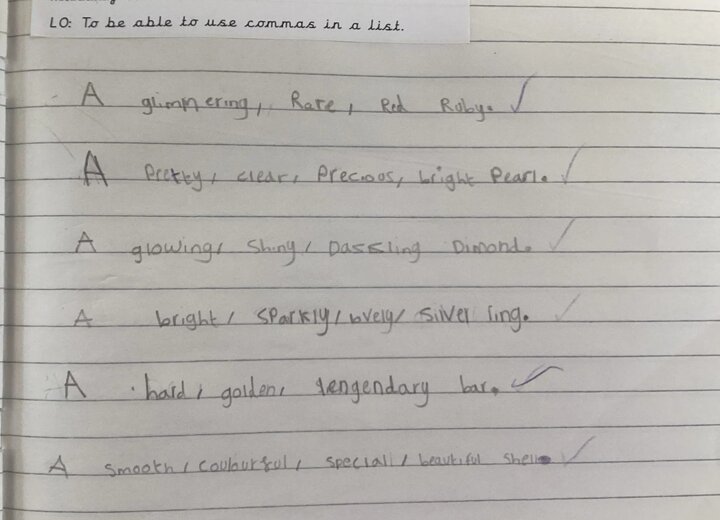 LO: To be able to use commas in a list.
A glimmering, Rare, Red Ruby.
A Pretty, clear, Precious, bright Pearl.
A glowing, Shiny, Dassling Dimond.
A bright, Sparkly, lovely, Silver ring.
A hard, golden, lengendary bar.
A smooth, Coulourful, speciall, beautiful shell.